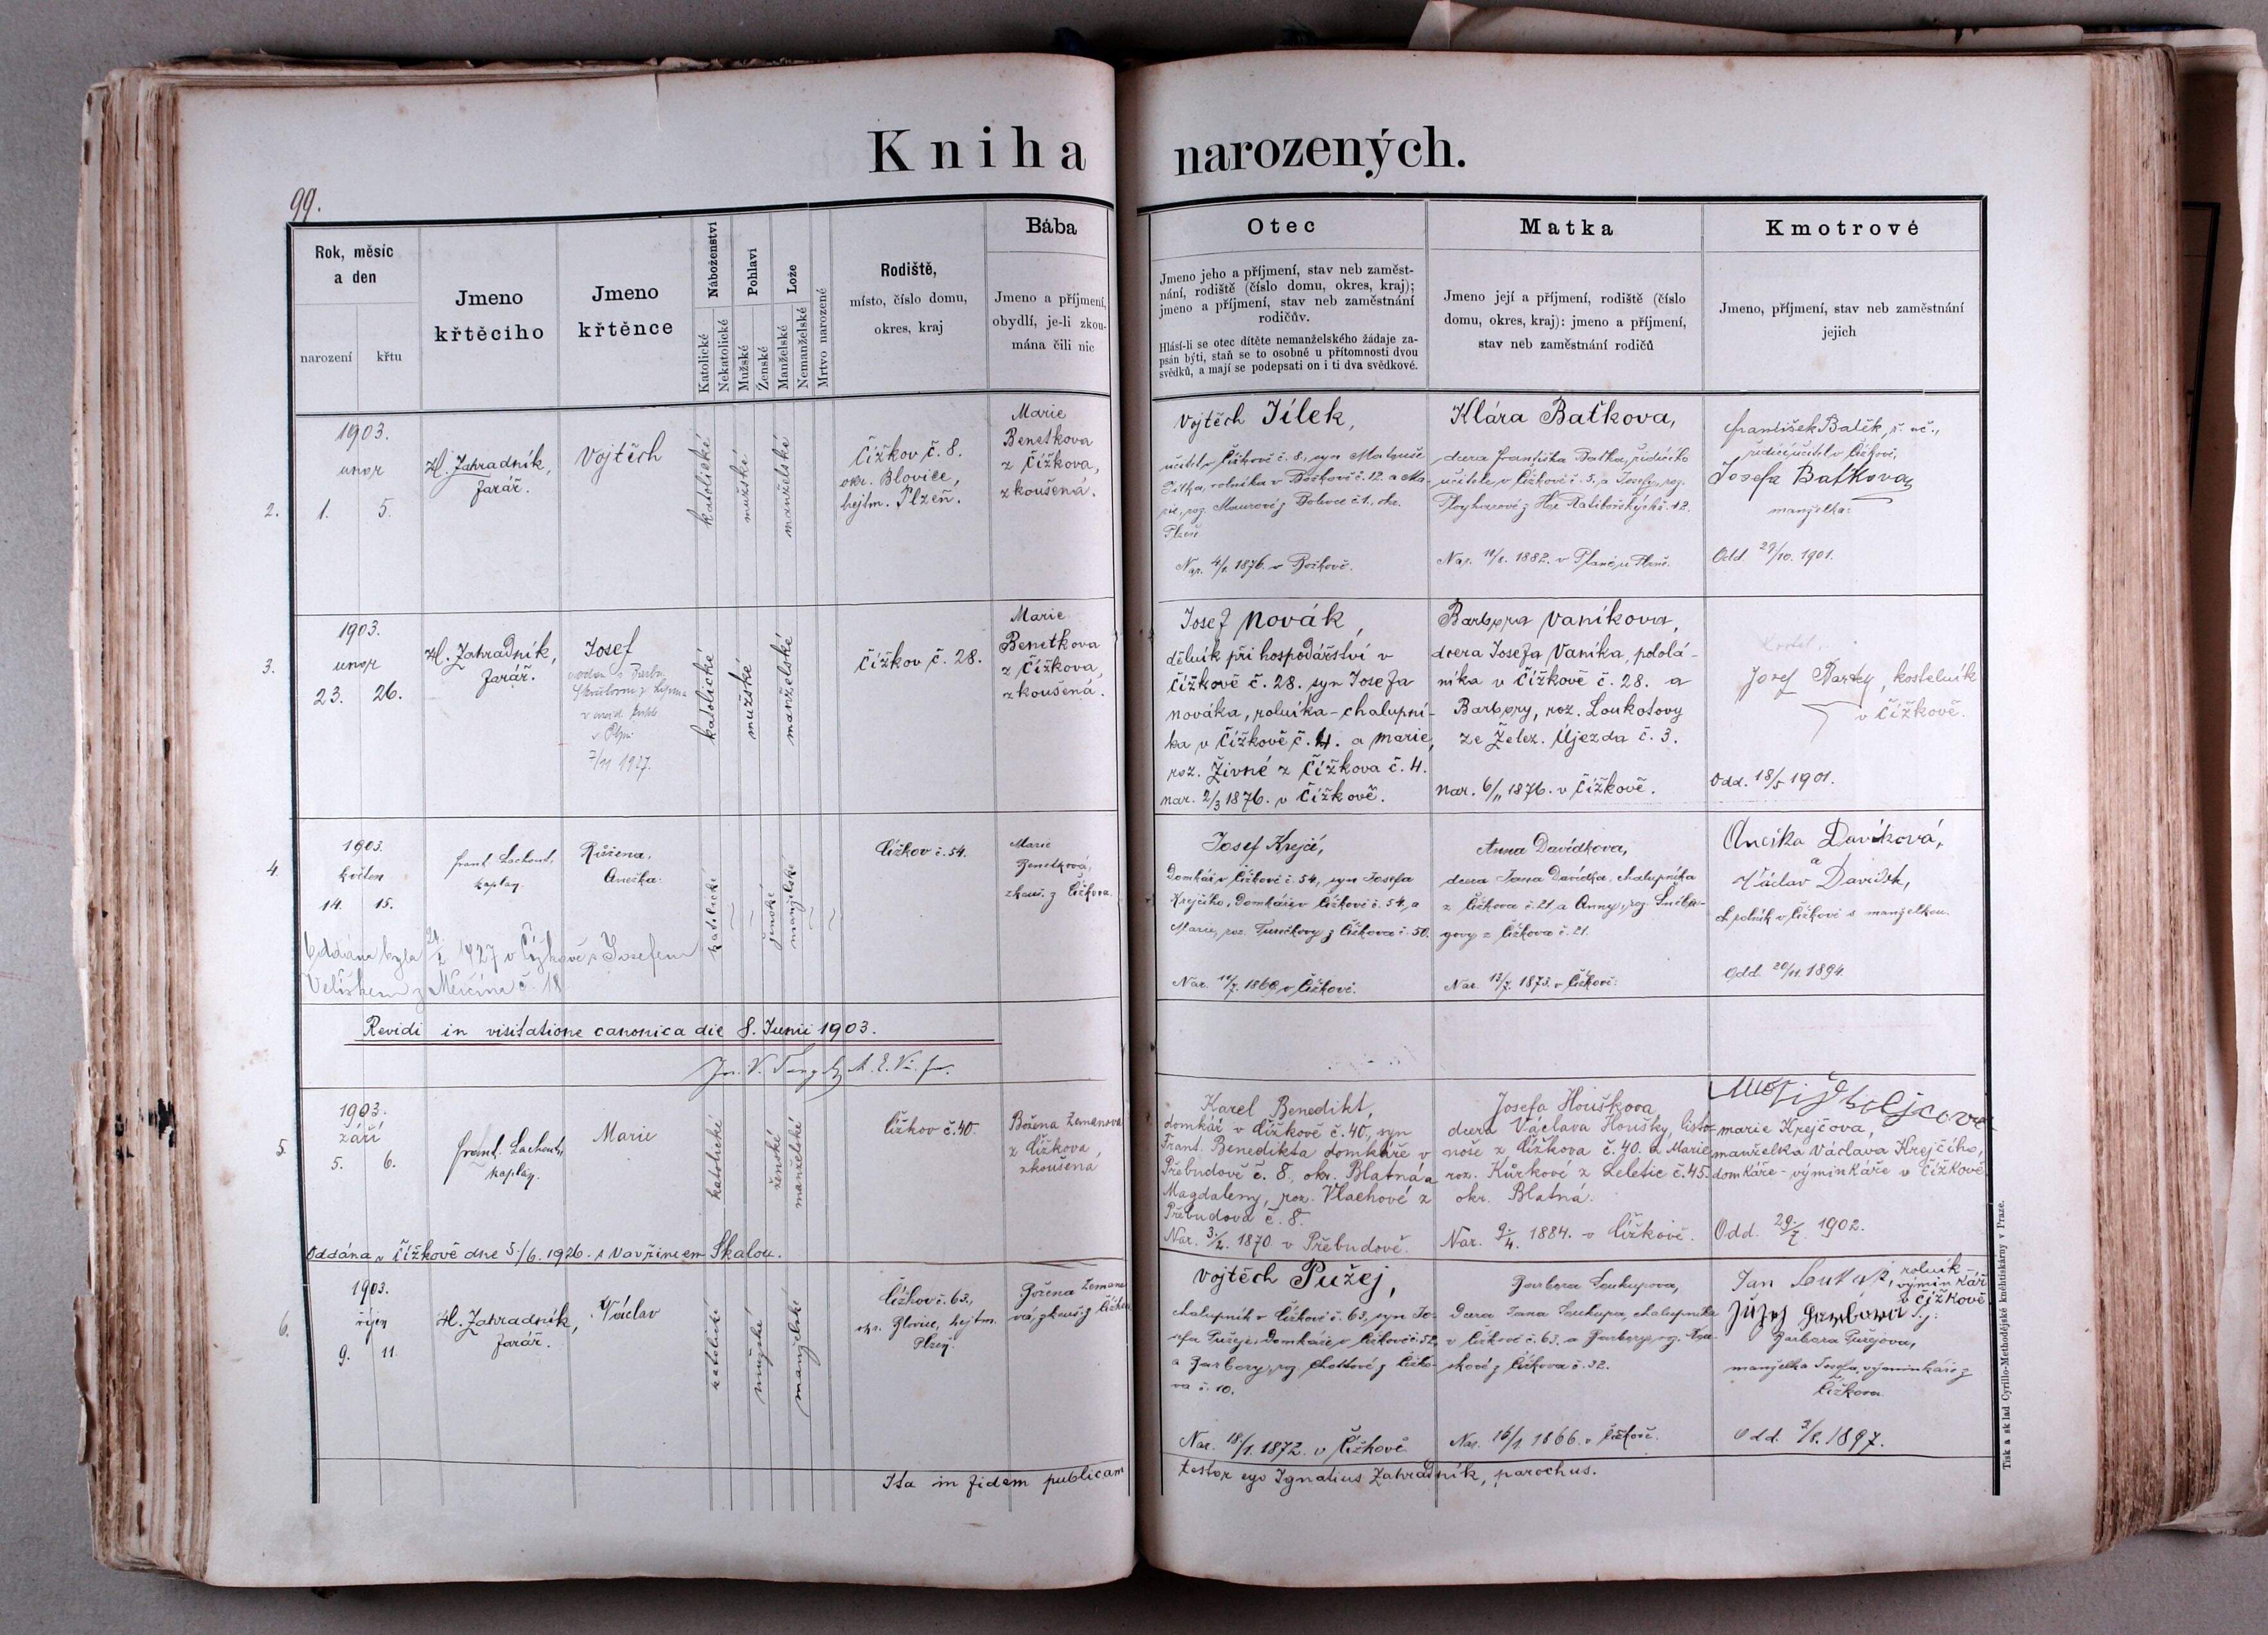 Kniha narozených.
99.
Rok, měsíc
a den
narození
křtu
Jmeno
křtěcího
Jmeno
křtěnce
Náboženství
Katolické
Nekatolické
Pohlaví
Mužské
Ženské
Lože
Manželské
Nemanželské
Mrtvo narozené
Rodiště,
místo, číslo domu,
okres, kraj
Bába
Jmeno a příjmení,
obydlí, je-li zkou-
mána čili nic
Otec
Jmeno jeho a příjmení, stav neb zaměst-
nání, rodiště (číslo domu, okres, kraj);
jmeno a příjmení, stav neb zaměstnání
rodičův.
Hlásí-li se otec dítěte nemanželského žádaje za-
psán býti, staň se to osobně u přítomnosti dvou
svědků, a mají se podepsati on i ti dva svědkové.
Matka
Jmeno její a příjmení, rodiště (číslo
domu, okres, kraj): jmeno a příjmení,
stav neb zaměstnání rodičů
Kmotrové
Jmeno, příjmení, stav neb zaměstnání
jejich
2.
1903.
unor
1. 5.
Zahradník,
farář.
Vojtěch
katolické
mužské
manželské
Čížkov č. 8.
okr. Blovice,
hejtm. Plzeň.
Marie
Benetkova
z Čížkova,
zkoušená.
Vojtěch Jílek,
učitel v Čížkově č. 8., syn Matouše
Jílka, rolníka v Božkově č. 12. a Ma-
rie, roz. Maurové z Bolevce č. 1., okr.
Plzeň
Nar. 1876. v Božkově.
Klára Baťkova,
dcera Františka Baťka, řídícího
učitele v Čížkově č. 5. a Josefy, roz.
č. 12.
Nar. 1882. v Plané u Plzně.
František Batěk,
řídící učitel v Čížkově,
Josefa Baťkova,
manželka.
Odd. 29/10. 1901.
3.
1903.
unor
23. 26.
Zahradník,
farář.
Josef
v Plzni
7/11 1927.
katolické
mužské
manželské
Čížkov č. 28.
Marie
Benetkova
z Čížkova,
zkoušená.
Josef Novák,
dělník při hospodářství v
Čížkově č. 28. syn Josefa
Nováka, rolníka-chalupní-
ka v Čížkově č. 4. a Marie,
roz. Živné z Čížkova č. 4.
Nar. 2/3 1876. v Čížkově.
Barbora Vaníkova,
dcera Josefa Vaníka, pololá-
níka v Čížkově č. 28. a
Barbory, roz. Loukotovy
ze Želez. Újezda č. 3.
Nar. 6/11 1876. v Čížkově.
Josef kostelník
v Čížkově.
Odd. 18/5 1901.
4.
1903.
květen
14. 15.
Frant. Lachout,
kaplan.
Růžena,
Anežka.
katolické
ženské
manželské
Čížkov č. 54.
Marie
Benetková,
zkouš. z Čížkova.
Josef Krejčí,
Domkář v Čížkově č. 54., syn Josefa
Krejčího, Domkáře v Čížkově č. 54, a
Marie, roz. z Čížkova č. 50.
Nar. 1869, v Čížkově.
Anna Davídkova,
dcera Jana Davídka, chalupníka
z Čížkova č. 21, a Anny, roz.
z Čížkova č. 21.
Nar. 13/7. 1873. v Čížkově.
Anežka Davídková,
a
Václav Davídek,
v Čížkově s manželkou.
Odd. 20/11. 1894.
Oddána byla 1927 v Čížkově s Josefem
z Měčína č. 18
Revidi in visitatione canonica die 8. Junii 1903.
5.
1903.
září
5. 6.
Frant. Lachout,
kaplan.
Marie
katolické
ženské
manželské
Čížkov č. 40.
Božena Zemanova
z Čížkova,
zkoušená
Karel Benedikt,
domkář v Čížkově č. 40., syn
Frant. Benedikta domkáře v
Přebudově č. 8., okr. Blatná a
Magdaleny, roz. Vlachové z
Přebudova č. 8.
Nar. 3./2. 1870. v Přebudově.
Josefa Houškova,
dcera Václava Houšky, listo-
noše z Čížkova č. 40. a Marie
roz. Kůrkové z Leletic č. 45.
okr. Blatná.
Nar. 9./4. 1884. v Čížkově.
Marie Krejčova,
manželka Václava Krejčího,
domkáře-výminkáře v Čížkově
Odd. 1902.
Oddána v Čížkově dne 5./6. 1926. s Vavřincem Skalou.
6.
1903.
říjen
9. 11.
Zahradník,
farář.
Václav
katolické
mužské
manželské
Čížkov č. 63.,
okr. Blovice, hejtm.
Plzeň.
Božena Zemano
vá, zkouš. z Čížkova
Vojtěch Pužej,
chalupník v Čížkově č. 63, syn Jo-
sefa Pužeje, Domkáře v Čížkově č. 52.
a Barbory, roz. z Čížko-
va č. 10.
Nar. 18/1. 1872. v Čížkově.
Barbora Soukupova,
Dcera Jana Soukupa, chalupníka
v Čížkově č. 63. a Barbory, roz.
z Čížkova č. 32.
Nar. 16/1 1866. v Čížkově.
Jan rolník-
výminkář
v Čížkově
Barbora Pužejova,
manželka Josefa, výminkáře z
Čížkova
Odd. 1897.
Ita in fidem publicam testor ego Ignatius Zahradník, parochus.
Tisk a sklad Cyrillo-Methodějské knihtiskárny v Praze.